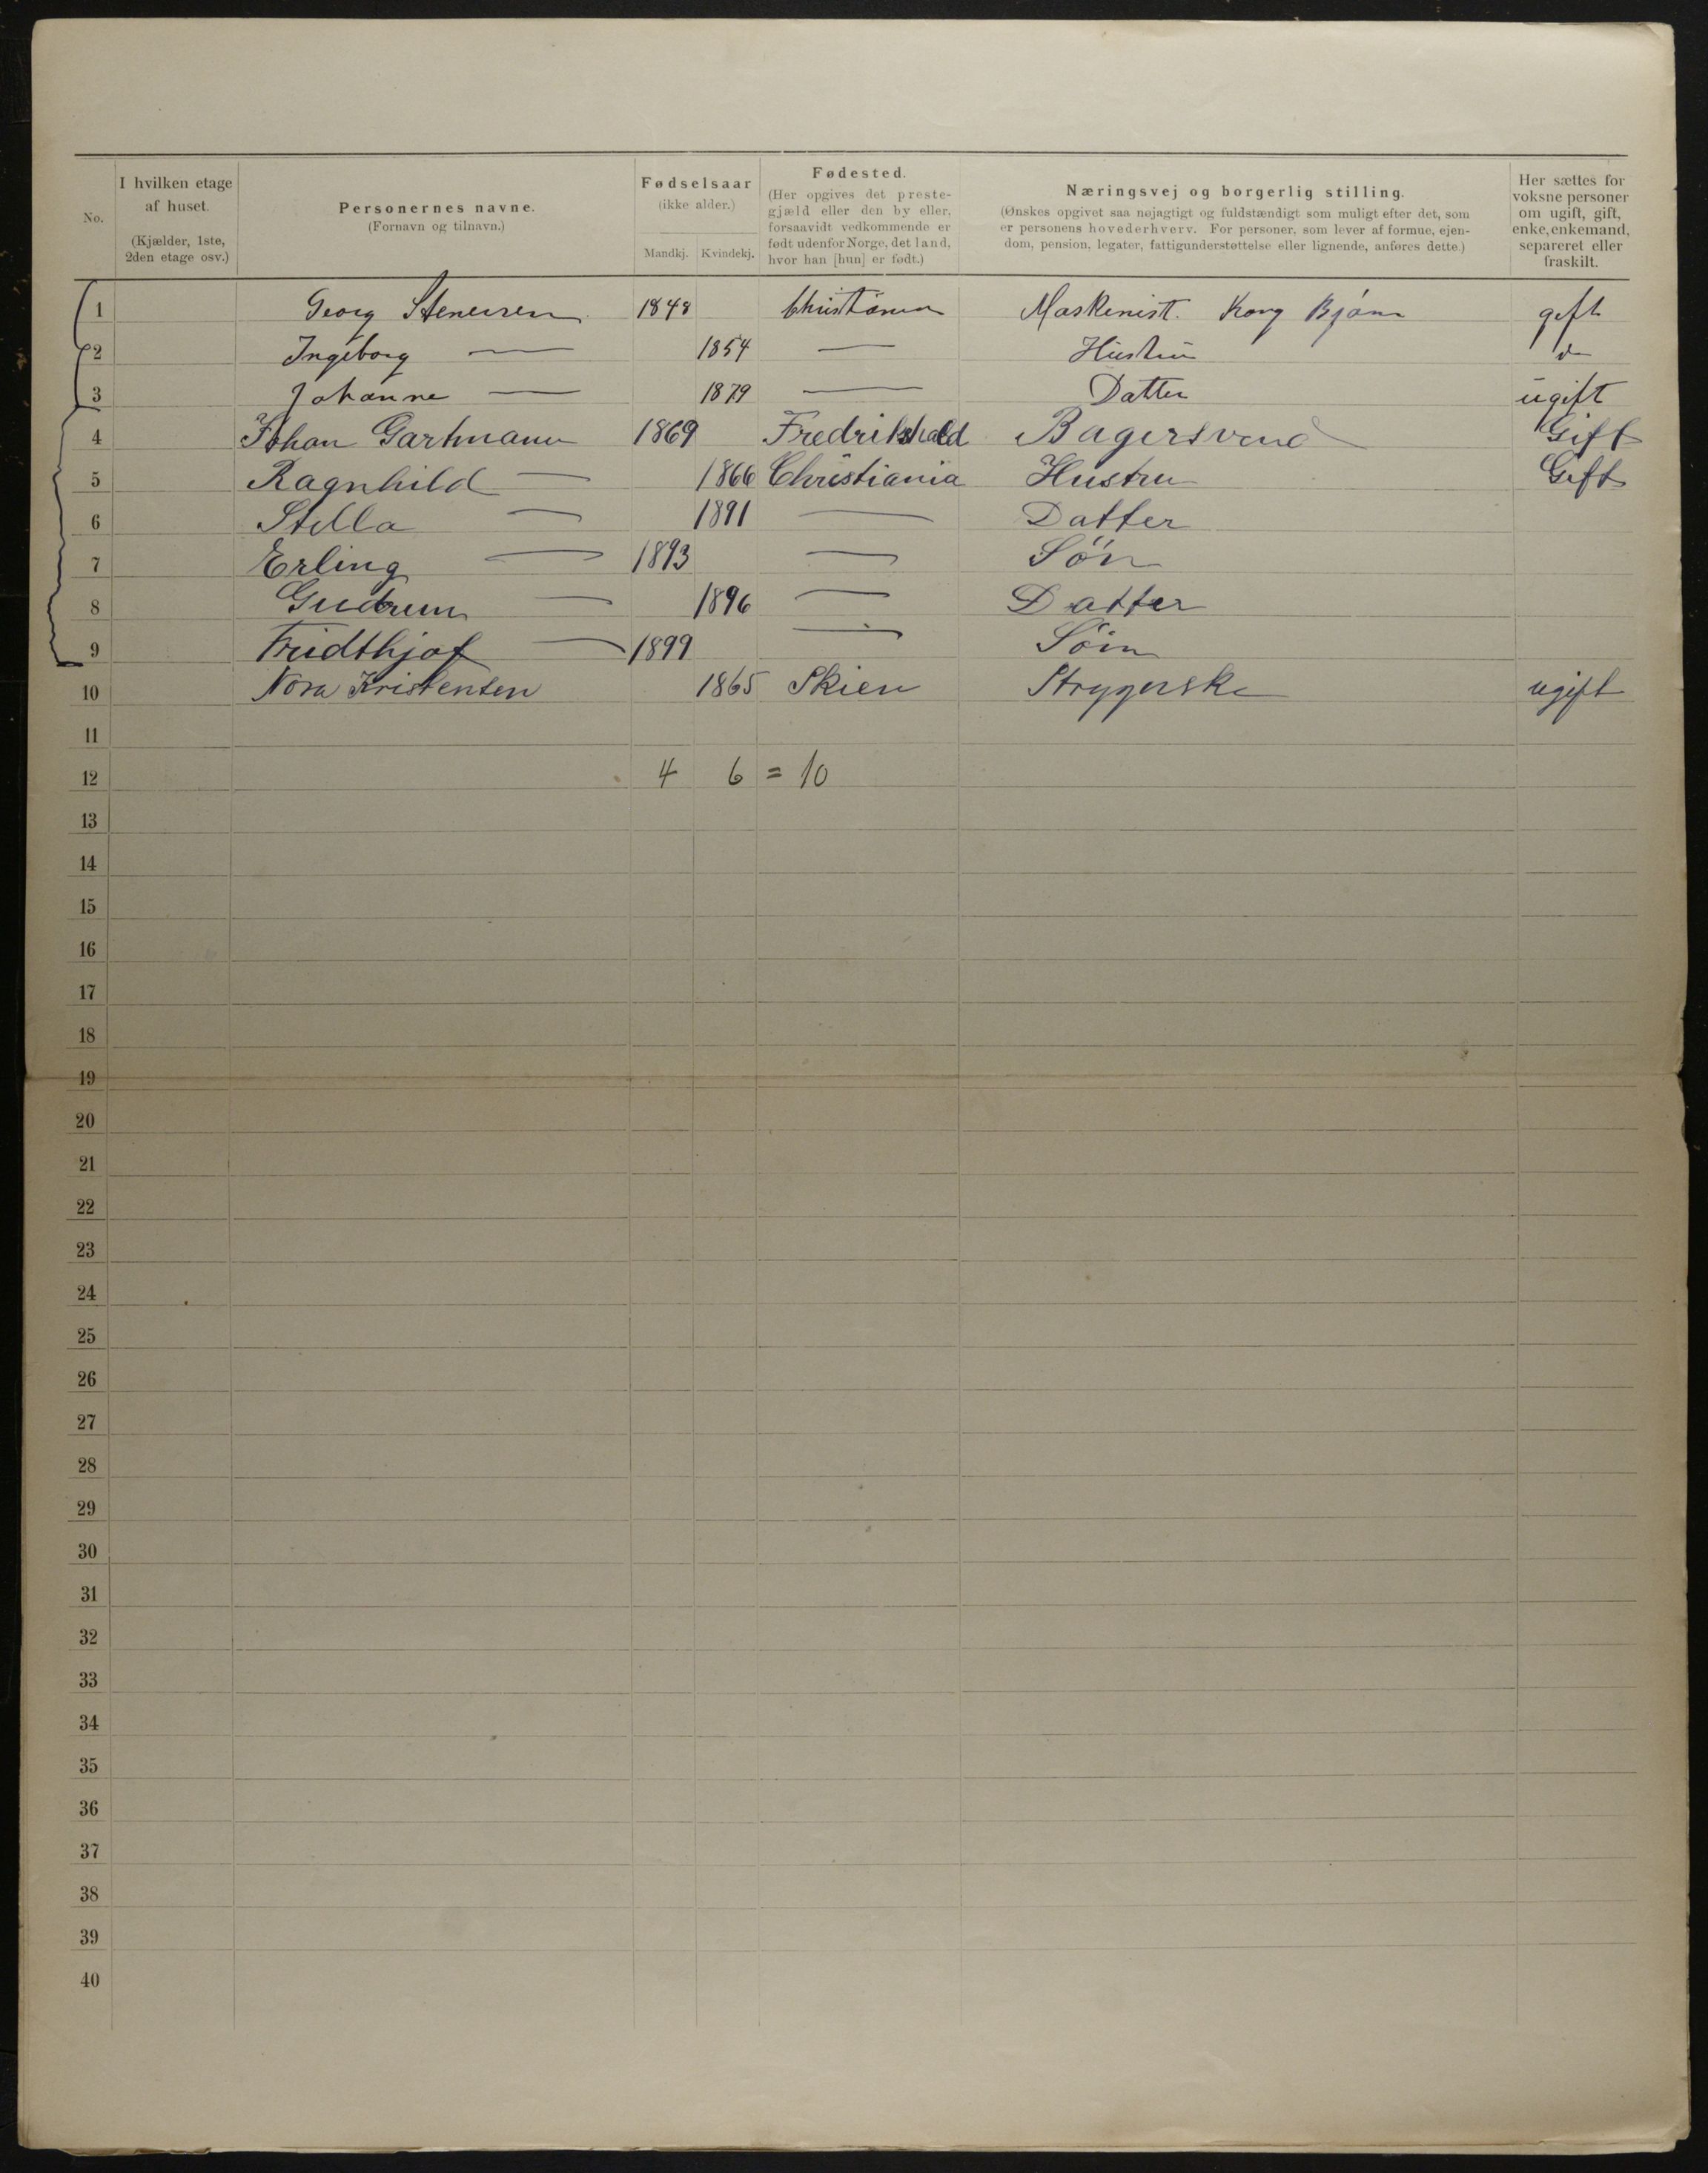 No.
I hvilken etage af huset. (Kjælder, 1ste, 2den etage osv.)
Personernes navne. (Fornavn og tilnavn.)
Fødselsaar (ikke alder.)
Mandkj. Kvindekj.
Fødested. (Her opgives det prestegjæld eller den by eller, forsaavidt vedkommende er født udenfor Norge, det land, hvor han [hun] er født.)
Næringsvej og borgerlig stilling. (Ønskes opgivet saa nøjagtigt og fuldstændigt som muligt efter det, som er personens hovederhverv. For personer, som lever af formue, ejendom, pension, legater, fattigunderstøttelse eller lignende, anføres dette.)
Her sættes for voksne personer om ugift, gift, enke, enkemand, separeret eller fraskilt.
1 Georg Stenersen 1848 Christiania Maskenist. Kong Bjørn gift
2 Ingeborg — 1854 — Hustru do
3 Johanne — 1879 — Datter ugift
4 Johan Gartmann 1869 Fredrikshald Bagersvend Gift
5 Ragnhild — 1866 Christiania Hustru Gift
6 Stella — 1891 — Datter
7 Erling — 1893 — Søn
8 Gudrun — 1896 — Datter
9 Fridthjof — 1899 — Søn
10 Nora Kristensen 1865 Skien Strygerske ugift
11
12 4 6 = 10
13
14
15
16
17
18
19
20
21
22
23
24
25
26
27
28
29
30
31
32
33
34
35
36
37
38
39
40